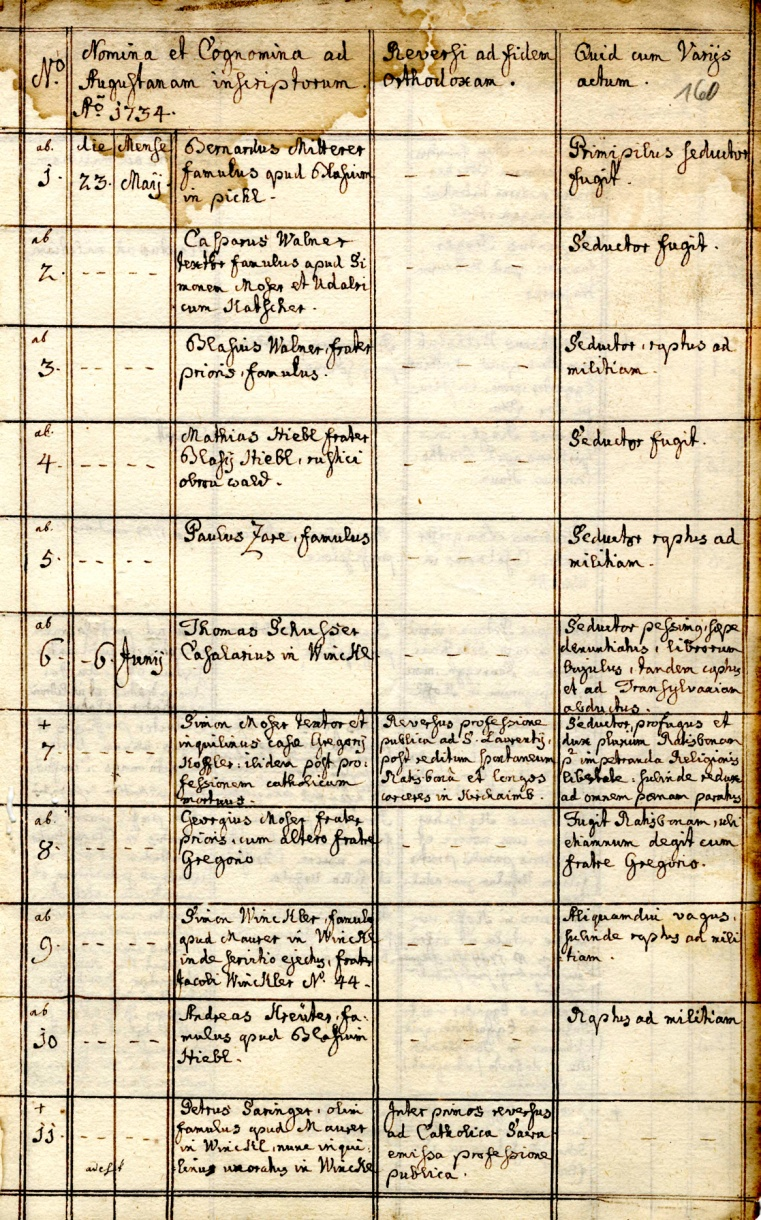 No.
Nomina et Cognomina ad
Augustanam inscriptorum.
Ao. 1734.
Reversi ad fidem
orthodoxam.
Quid cum Varijs
actum.
160
ab.
1.
die Mense
23. Maij
Bernardus Mitterer
famulus apud Blasium
in pichl.
– – –
Primipilus seductor
fugit.
ab
2.
– – – –
Casparus Walner
textor famulus apud Si
monem Moser et Udalri
cum Katscher.
– – –
Seductor fugit.
ab
3.
– – – –
Blasius Walner, frater
prioris, famulus.
– – –
Seductor, raptus ad
militiam.
ab.
4.
– – – –
Mathias Hiebl frater
Blasij Hiebl, rustici
wald.
– – –
Seductor fugit.
ab.
5.
– – – –
Paulus Zare, famulus
– – –
Seductor raptus ad
militiam.
ab
6.
– 6. Junij
Thomas Schusser
Casalarius in Winckl.
– – –
Seductor saepe
denuntiatus, librorum
bajulus, tandem captus
et ad Transylvaniam
abductus.
+
7.
– – – –
Simon Moser textor et
inquilinus casae Gregorij
Koffler: ibidem post pro:
fessionem catholicam
mortuus.
Reversus professione
publica ad S. Laurentij,
post reditum spontaneum
Ratisbona et longos
carceres in Kirchaimb.
Seductor, profugus et
dux plurium Ratisbonam
p impetranda Religionis
libertate: subinde redux
ad omnem poenam paratus
ab.
8.
– – – –
Georgius Moser frater
prioris, cum altero fratre
Gregorio
– – –
Fugit Ratisbonam, ubi
etiamnum degit cum
fratre Gregorio.
ab
9.
– – – –
Simon Winckler, famulus
apud Maurer in Winckl
inde servitio ejectus, frater
Jacobi Winckler No. 44.
– – –
Aliquamdiu vagus,
subinde raptus ad mili
tiam.
ab
10
– – – –
Andreas Kreüter, fa:
mulus apud Blasium
Hiebl.
– – –
Raptus ad militiam
+
11.
– – – –
adest
Petrus Saringer, olim
famulus apud Maurer
in Winckl, nunc inqui:
linus uxoratus in Winckl
Inter primos reversus
ad Catholica Sacra
emissa professione
publica.
– – –